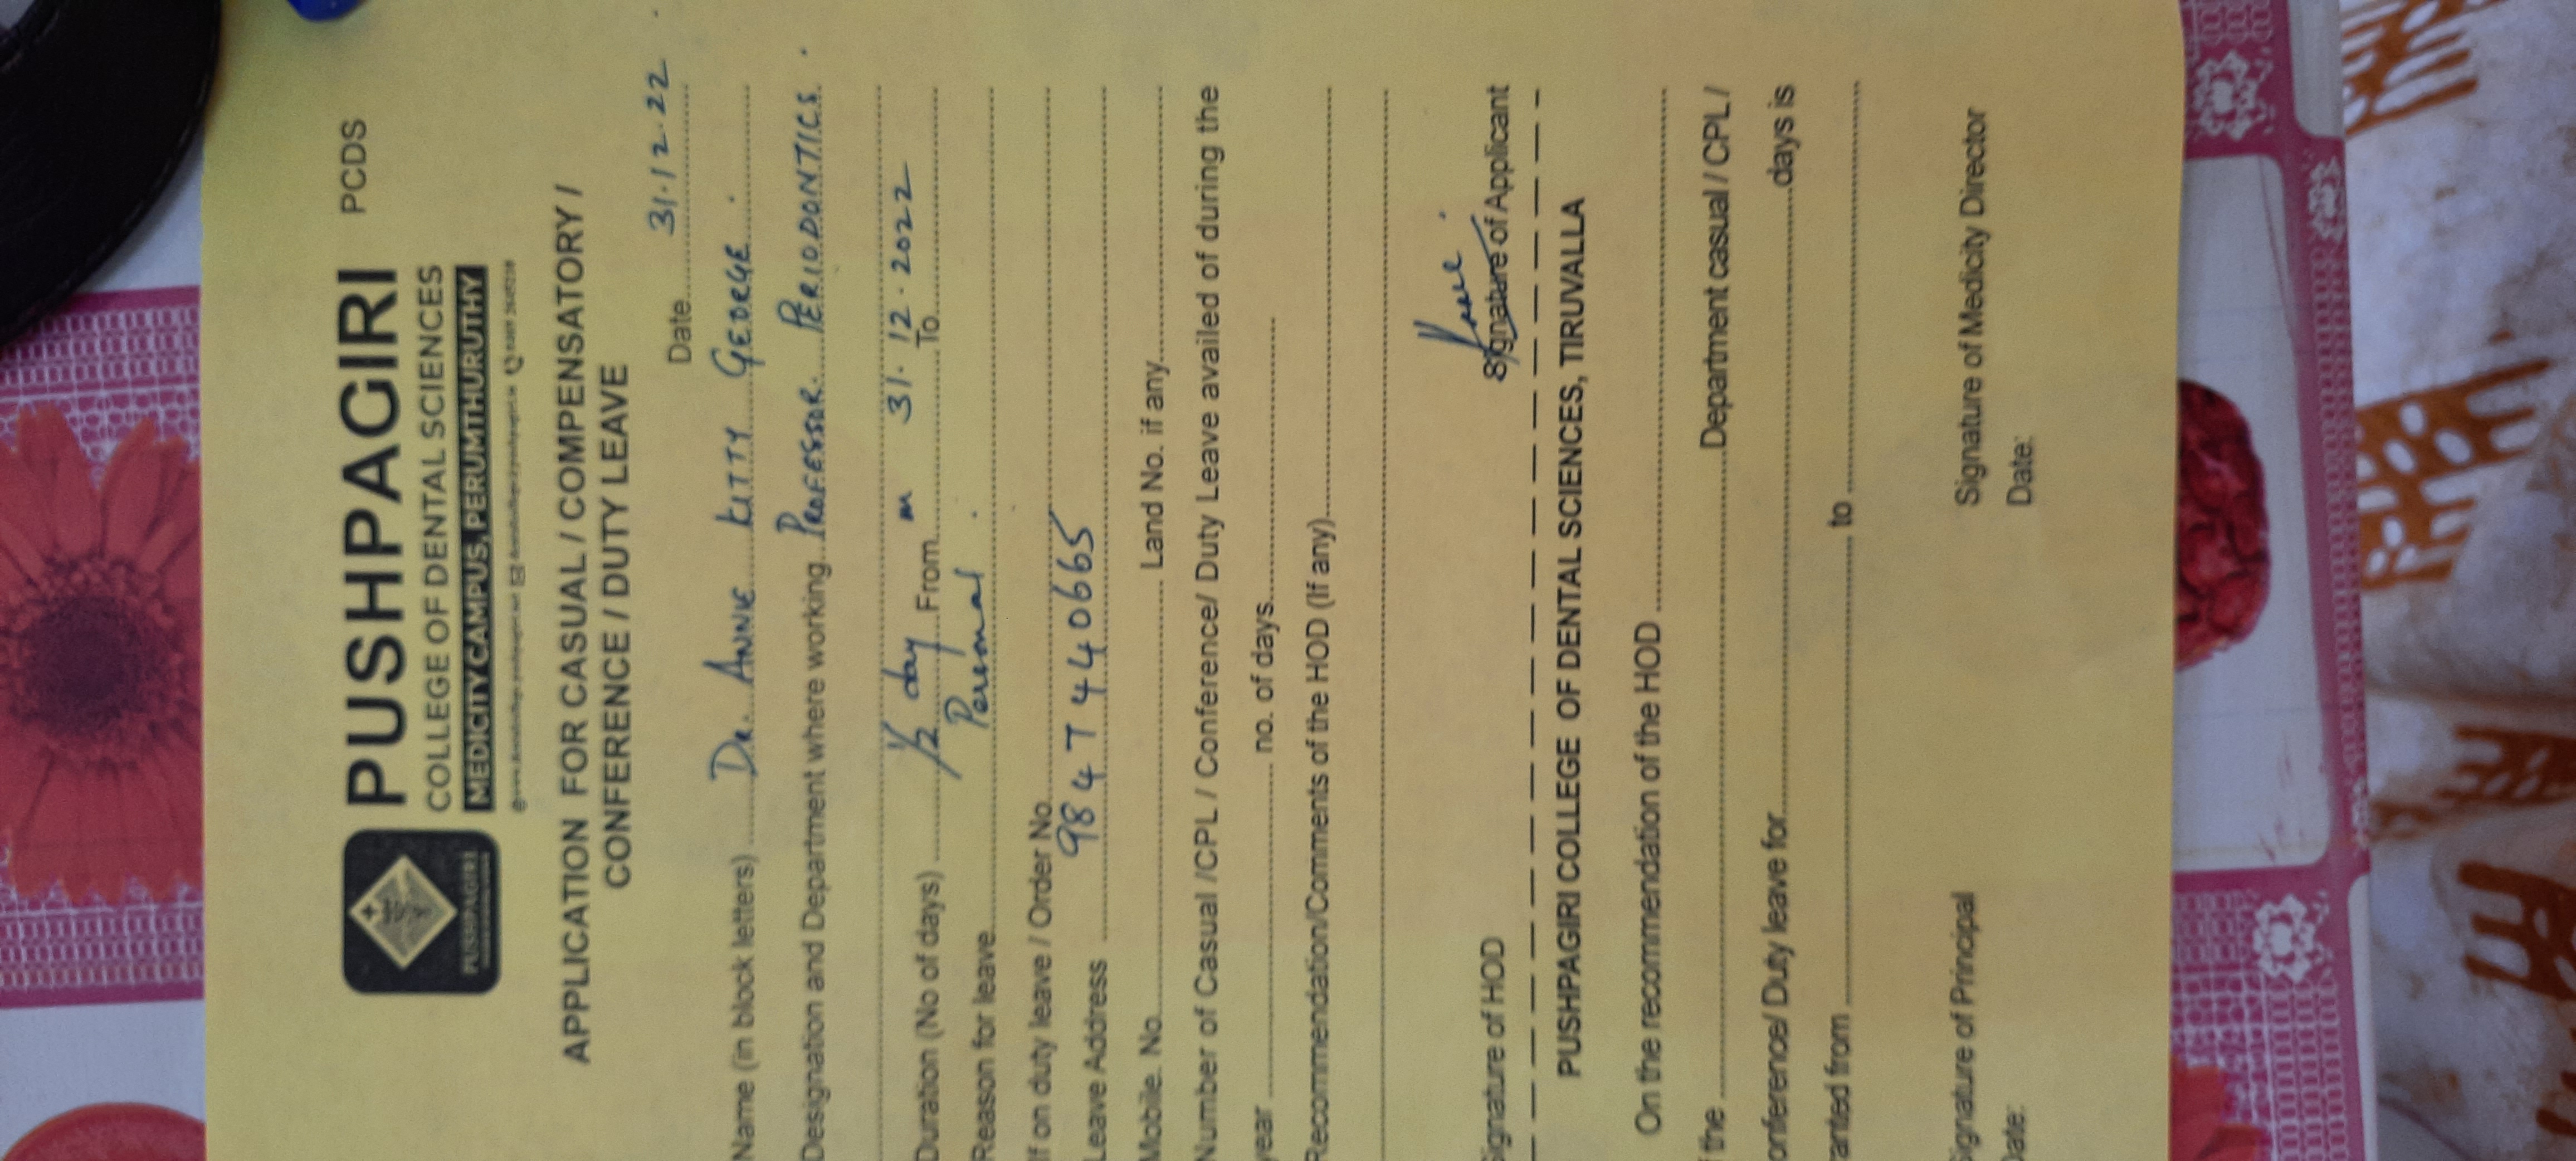 PUSHPAGIRI PCDS
COLLEGE OF DENTAL SCIENCES
PUSHPAGIRI
MEDICITY CAMPUS, PERUMTHURUTHY
APPLICATION FOR CASUAL / COMPENSATORY /
CONFERENCE / DUTY LEAVE
Date 31.12.22
Name (in block letters) DR. ANNIE KITTY GEORGE.
Designation and Department where working PROFESSOR. PERIODONTICS.
Duration (No of days) 1/2 day From on 31.12.2022 To
Reason for leave Personal.
If on duty leave / Order No.
Leave Address 9847440665
Mobile. No. Land No. if any
Number of Casual /CPL / Conference/ Duty Leave availed of during the
year no. of days
Recommendation/Comments of the HOD (If any)
Signature of HOD Signature of Applicant
PUSHPAGIRI COLLEGE OF DENTAL SCIENCES, TIRUVALLA
On the recommendation of the HOD
the Department casual / CPL /
onference/ Duty leave for days is
ranted from to
Signature of Principal Signature of Medicity Director
Date: Date: